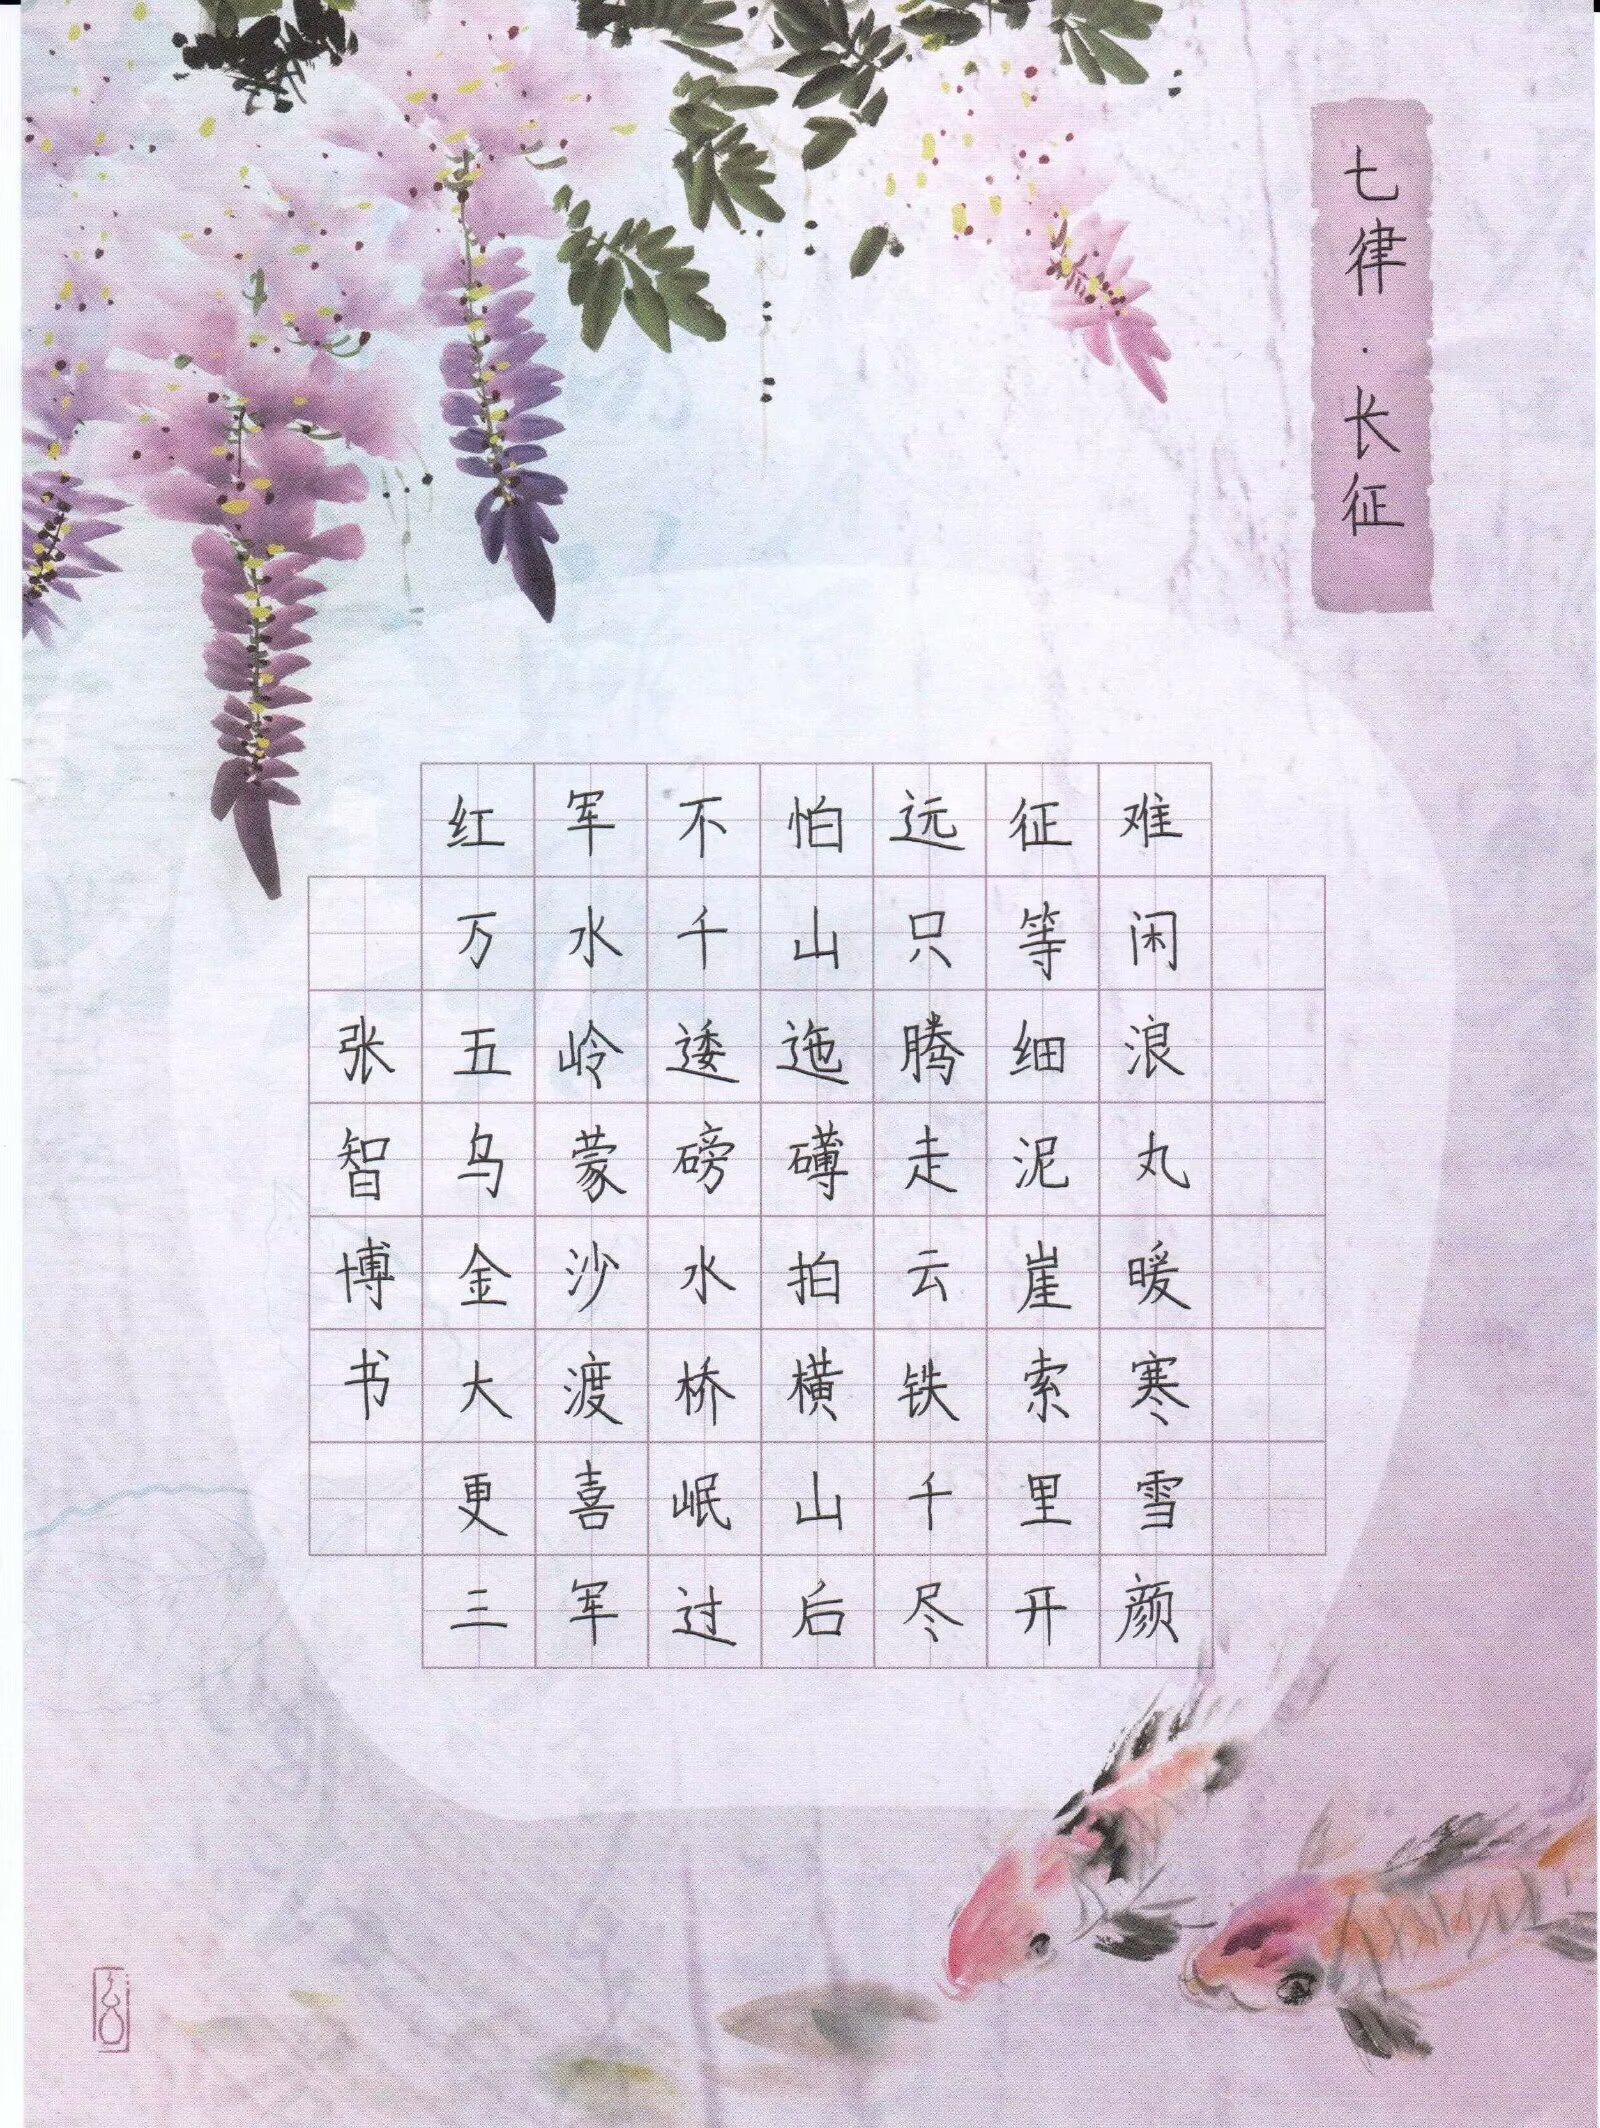 七律·长征
红军不怕远征难
万水千山只等闲
五岭逶迤腾细浪
乌蒙磅礴走泥丸
金沙水拍云崖暖
大渡桥横铁索寒
更喜岷山千里雪
三军过后尽开颜
张智博书